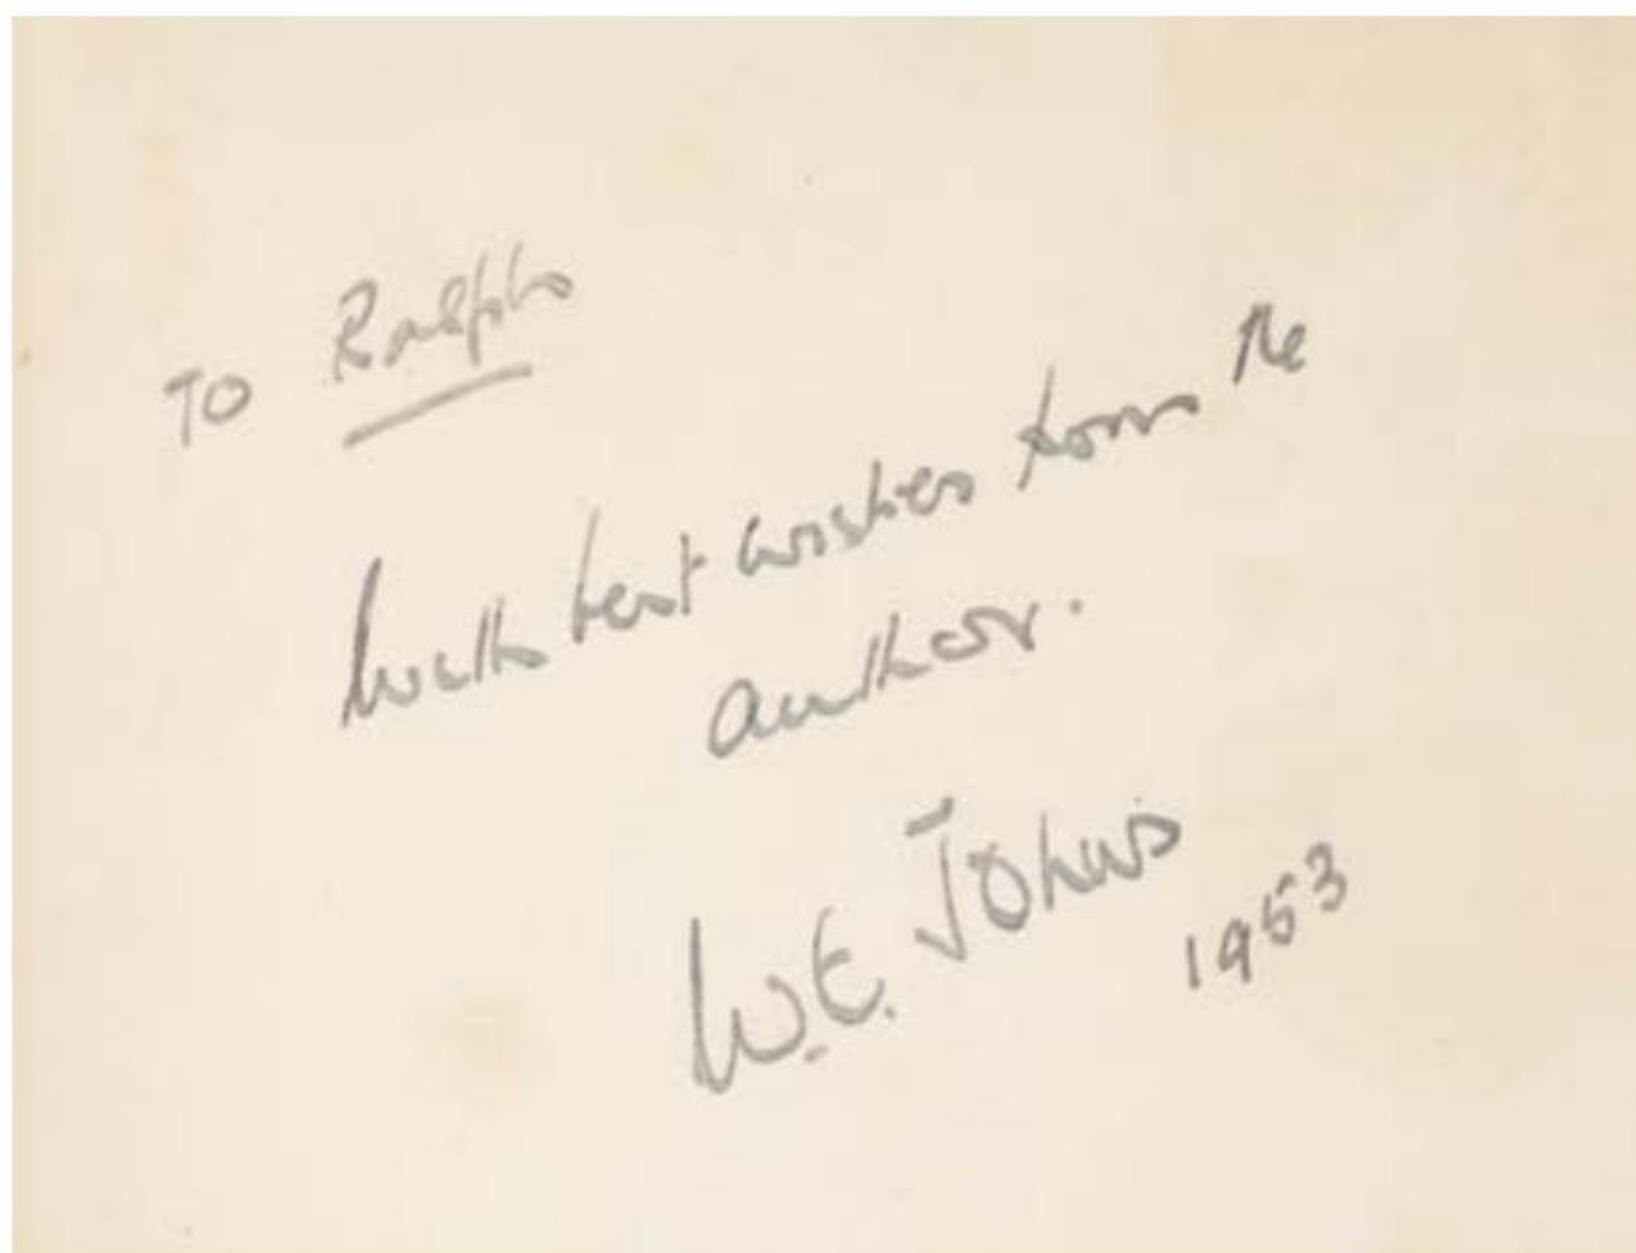 TO Ralph
With best wishes from the
author.
W.E. Johns
1953